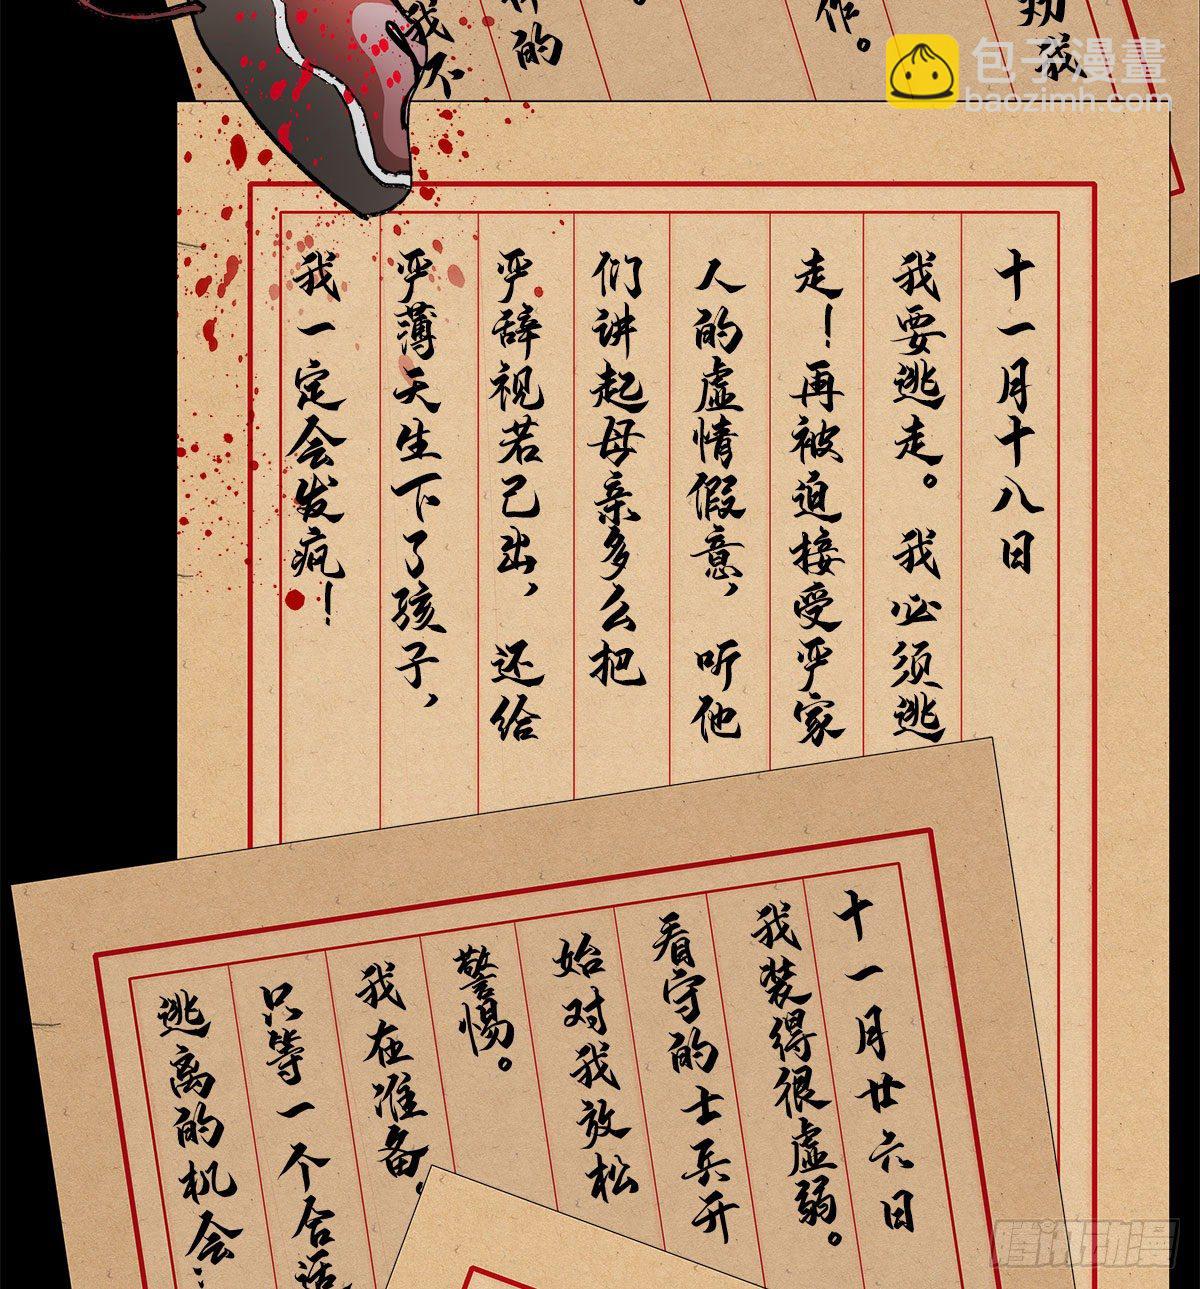 劲
孩
作。
的
我不
包子漫畫
baozimh.com
十一月十八日
我要逃走。我必须逃
走！再被迫接受严家
人的虚情假意，听他
们讲起母亲多么把
严辞视若己出，还给
严薄天生下了孩子，
我一定会发疯！
十一月廿六日
我装得很虚弱。
看守的士兵开
始对我放松
警惕。
我在准备，
只等一个合适
逃离的机会…
腾讯动漫